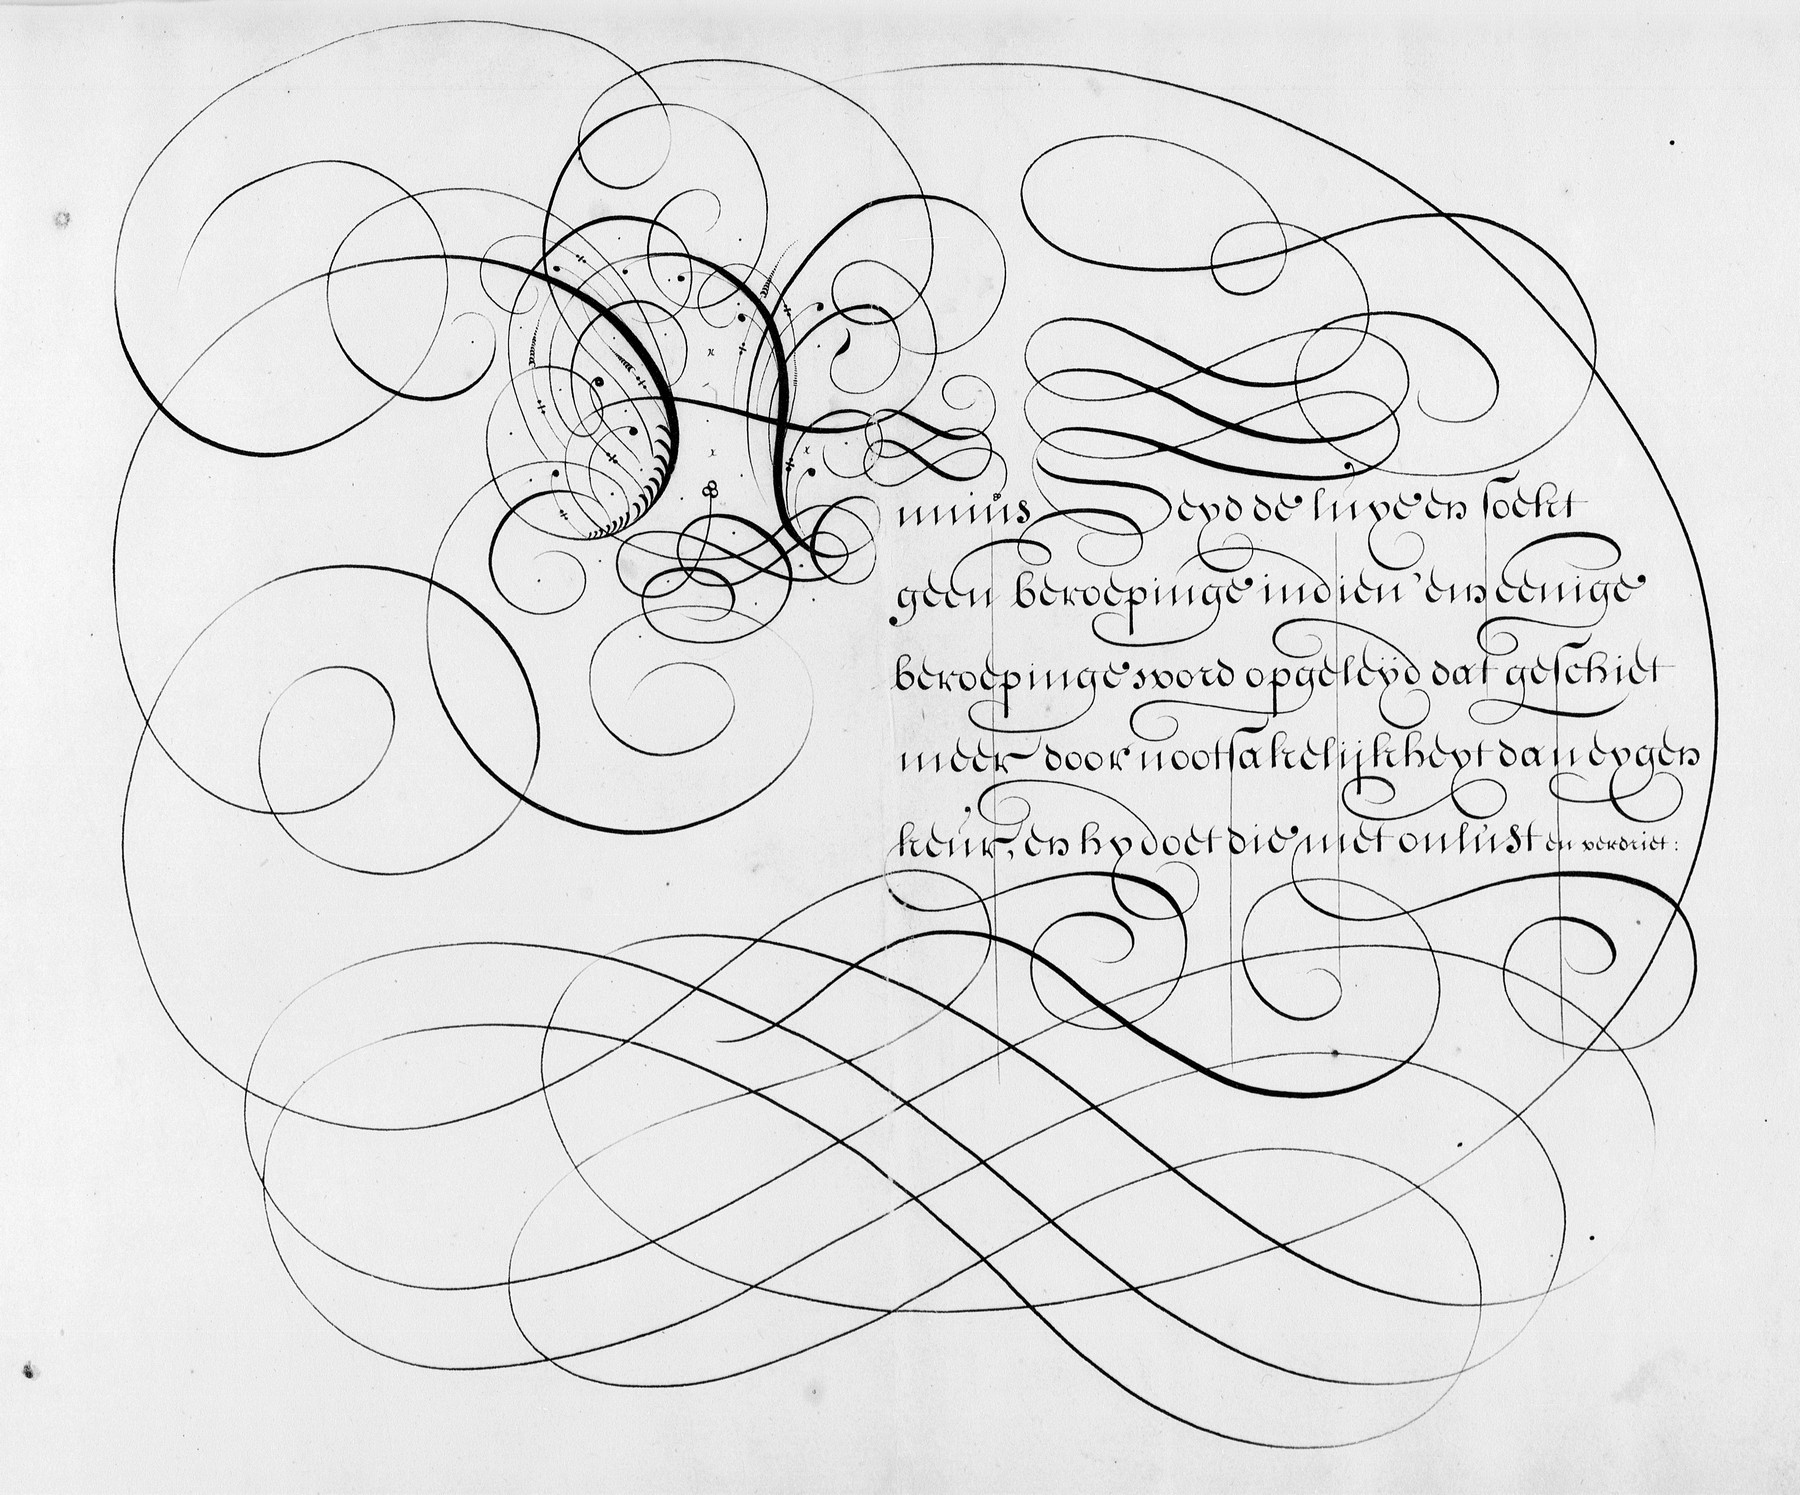 nimis Heyd de luye en soekt
geen beroepinge indien 'em eenige
beroepinge word opgeleÿd dat geschiet
meer door nootsakelijkheyt dan eygen
keur, en hy doet die met onlust en verdriet: